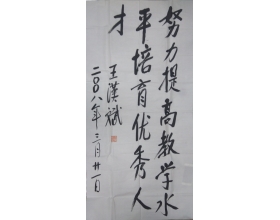 努力提高教学水
平培育优秀人
才
王漢斌
二〇〇八年三月廿一日